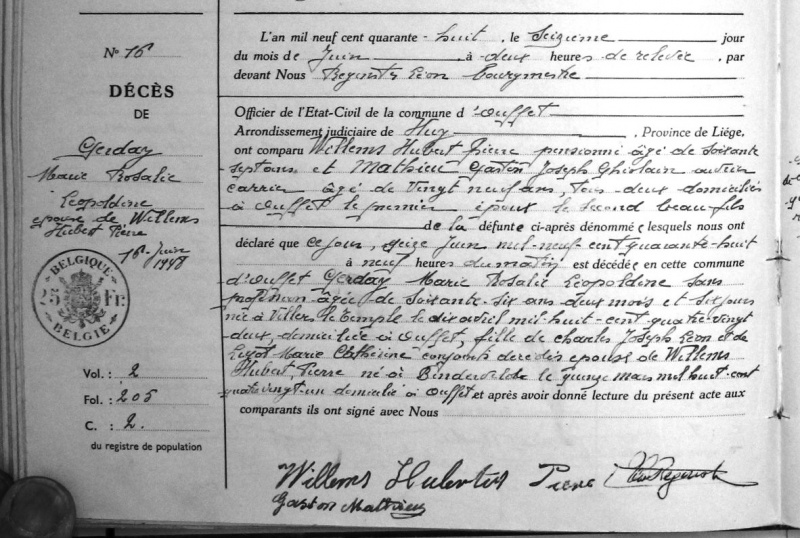 N° 16
DÉCÈS
DE
Gerday
Marie Rosalie
Leopoldine
epouse de Willems
Hubert Pierre
16 Juin
1948
BELGIQUE
25 Fr.
BELGIË
Vol. : 2
Fol. : 205
C. : 2.
du registre de population
L'an mil neuf cent quarante-huit, le Seizieme jour
du mois de Juin, à deux heures de relevée, par
devant Nous Léon bourgmestre
Officier de l'Etat-Civil de la commune d'Ouffet
Arrondissement judiciaire de Huy, Province de Liége,
ont comparu Willems Hubert Pierre pensionné âgé de soixante
sept ans et Mathieu Gaston Joseph Ghislain ouvrier
carrier âgé de vingt neuf ans, tous deux domiciliés
à Ouffet le premier époux le second beau-fils
de la défunte ci-après dénommé e lesquels nous ont
déclaré que ce jour, seize Juin mil-neuf cent quarante-huit
à neuf heures du matin est décédé e en cette commune
d'Ouffet Gerday Marie Rosalie Leopoldine sans
profession âgée de soixante-six ans deux mois et six jours
née à Villers le Temple le dix avril mil huit-cent quatre-vingt
deux, domiciliée à Ouffet, fille de Charles Joseph Léon et de
Marie Catherine conjoints décédés épouse de Willems
Hubert Pierre né à le quinze mars mil huit-cent
quatre vingt-un domicilié à Ouffet et après avoir donné lecture du présent acte aux
comparants ils ont signé avec Nous
Willems Hubertus Pierre
Gaston Mathieu